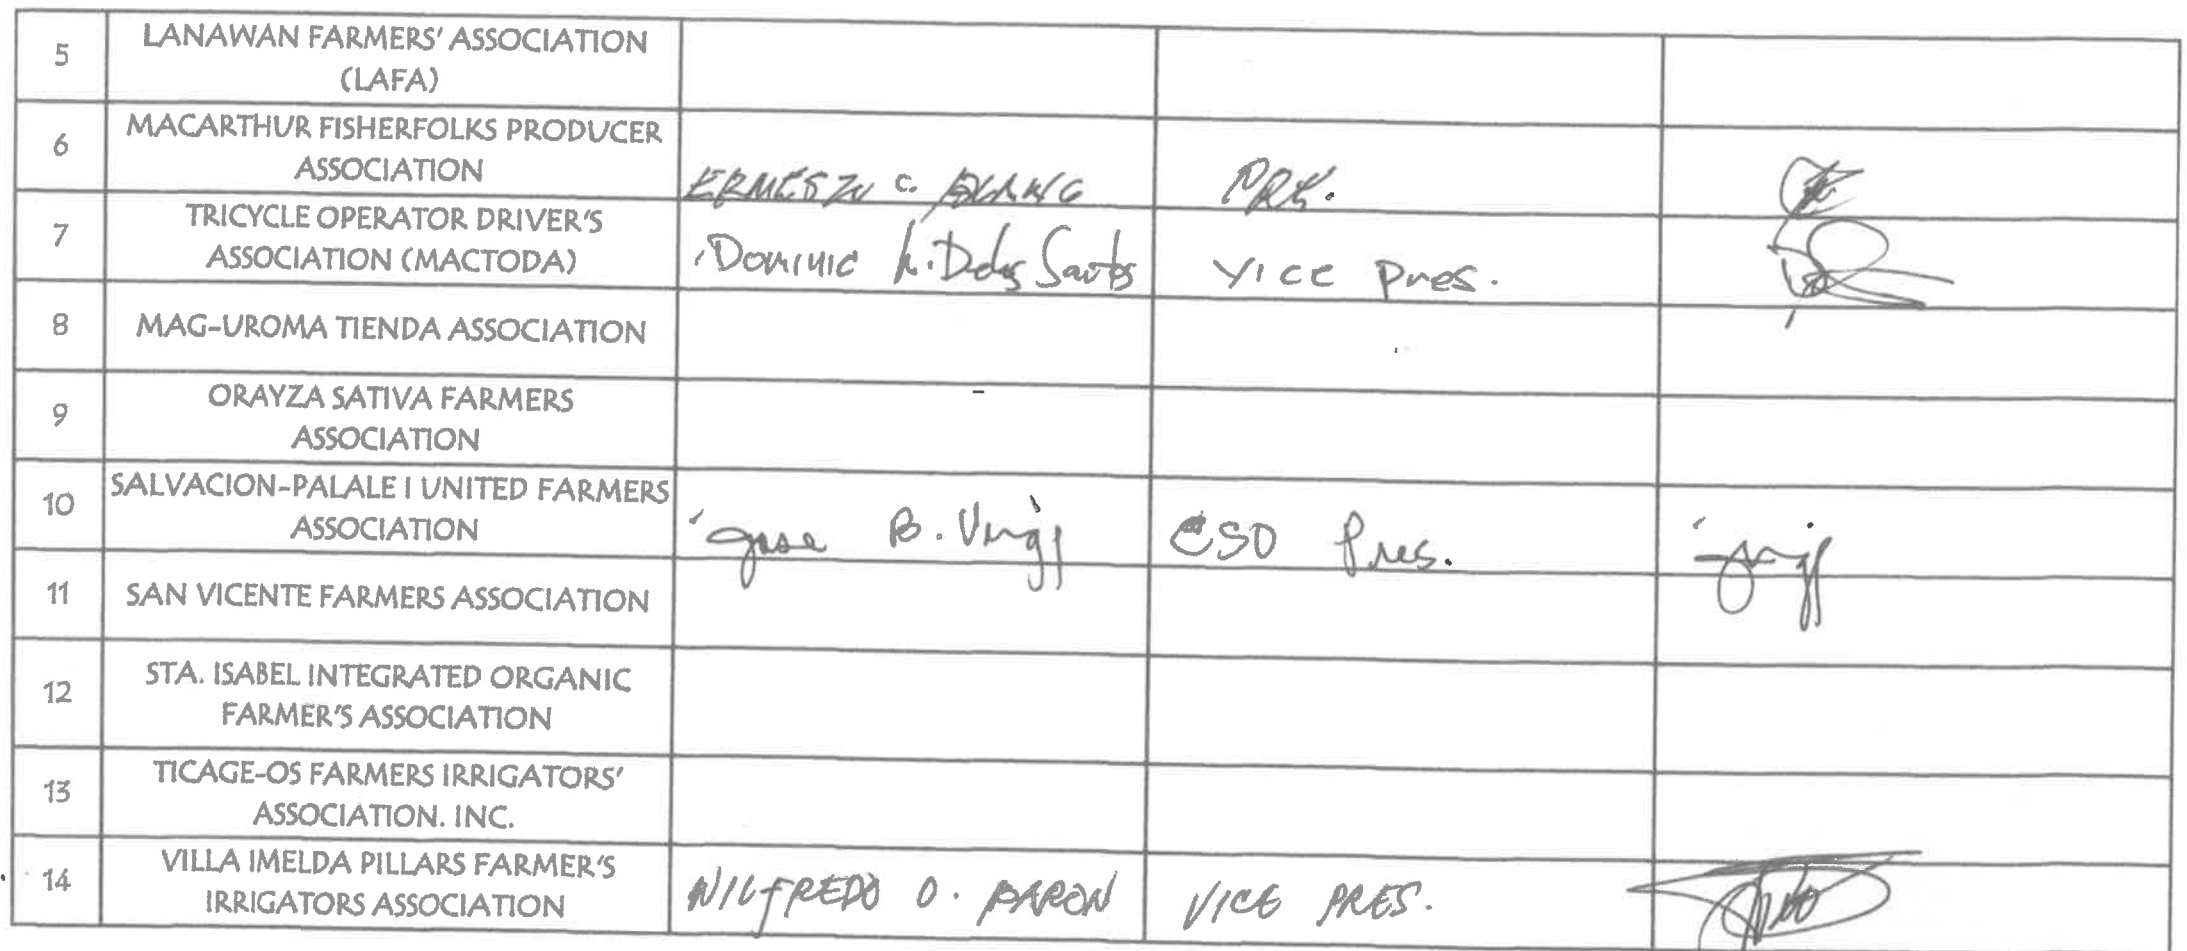 5 LANAWAN FARMERS' ASSOCIATION
(LAFA)
6 MACARTHUR FISHERFOLKS PRODUCER
ASSOCIATION
ERNESTO C.
7 TRICYCLE OPERATOR DRIVER'S
ASSOCIATION (MACTODA)
Dominic Delos Santos Vice Pres.
8 MAG-UROMA TIENDA ASSOCIATION
9 ORAYZA SATIVA FARMERS
ASSOCIATION
10 SALVACION-PALALE I UNITED FARMERS
ASSOCIATION
Jose B. CSO Pres.
11 SAN VICENTE FARMERS ASSOCIATION
12 STA. ISABEL INTEGRATED ORGANIC
FARMER'S ASSOCIATION
13 TICAGE-OS FARMERS IRRIGATORS'
ASSOCIATION. INC.
14 VILLA IMELDA PILLARS FARMER'S
IRRIGATORS ASSOCIATION
WILFREDO O. BARON VICE PRES.